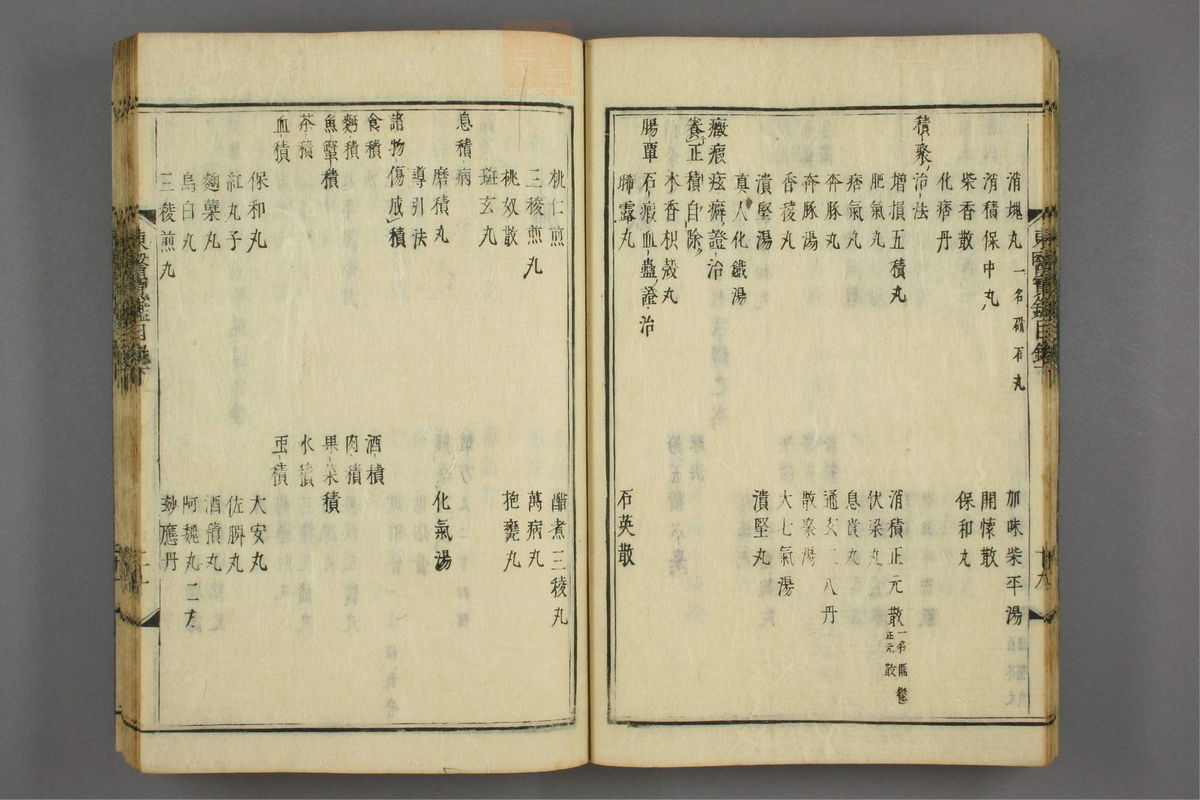 消塊丸 一名硝石丸 加味柴平湯
消積保中丸 開懷散
柴香散 保和丸
化痞丹
積聚治法
增損五積丸 消積正元散 一名開鬱正元散
肥氣丸 伏梁丸
痞氣丸 息賁丸
奔豚丸 通玄二八丹
奔豚湯 散聚湯
香稜丸 大七氣湯
潰堅湯 潰堅丸
真人化鐵湯
癥瘕痃癖證治
養正積自除
木香枳殼丸
腸覃石瘕血蠱證治
晞露丸 石英散
東醫寶鑑目錄下
十九
桃仁煎 醋煮三稜丸
三稜煎丸 萬病丸
桃奴散 抱甕丸
斑玄丸
息積病
磨積丸 化氣湯
導引法
諸物傷成積
食積 酒積
麪積 肉積
魚蟹積 果菜積
茶積 水積
血積 虫積
保和丸 大安丸
紅丸子 佐脾丸
麴蘗丸 酒積丸
烏白丸 阿魏丸二方
三稜煎丸 妙應丹
東醫寶鑑目錄下
二十